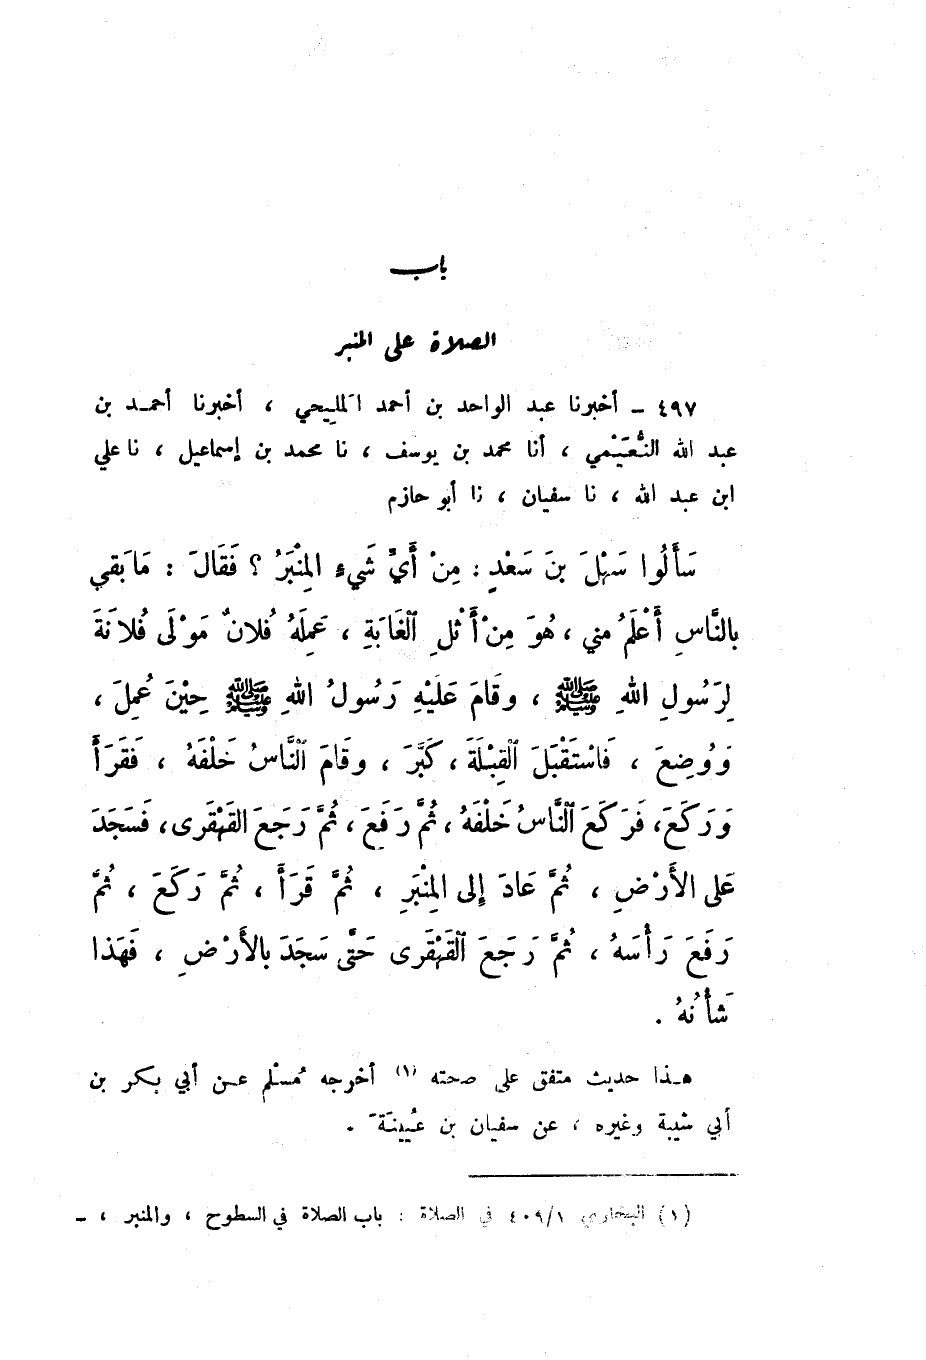 باب
الصلاة على المنبر
٤٩٧ – أخبرنا عبد الواحد بن أحمد المَلِيحي ، أخبرنا أحمـد بن
عبد الله النُّعَيْمي ، أنا محمد بن يوسف ، نا محمد بن إسماعيل ، نا علي
ابن عبد الله ، نا سفيان ، نا أبو حازم
سَأَلُوا سَهْلَ بنَ سَعْدٍ : مِنْ أَيِّ شَيءٍ المِنْبَرُ ؟ فَقَالَ : مَا بَقي
بالنَّاسِ أَعْلَمُ مني ، هُوَ مِنْ أَثْلِ ٱلْغَابَةِ ، عَمِلَهُ فُلانٌ مَوْلَى فُلانَةَ
لِرَسُولِ اللهِ ﷺ ، وقَامَ عَلَيْهِ رَسُولُ اللهِ ﷺ حِيْنَ عُمِلَ ،
وَوُضِعَ ، فَاسْتَقْبَلَ ٱلْقِبْلَةَ ، كَبَّرَ ، وقَامَ ٱلنَّاسُ خَلْفَهُ ، فَقَرَأَ
وَرَكَعَ ، فَرَكَعَ ٱلنَّاسُ خَلْفَهُ ، ثُمَّ رَفَعَ ، ثُمَّ رَجَعَ القَهْقَرى ، فَسَجَدَ
عَلى الأَرْضِ ، ثُمَّ عَادَ إِلى المِنْبَرِ ، ثُمَّ قَرَأَ ، ثُمَّ رَكَعَ ، ثُمَّ
رَفَعَ رَأْسَهُ ، ثُمَّ رَجَعَ ٱلْقَهْقَرى حَتَّى سَجَدَ بالأَرْضِ ، فَهَذا
شَأْنُهُ .
هـذا حديث متفق على صحته (١) أخرجه مُسْلم عـن أبي بكر بن
أبي شيبة وغيره ، عن سفيان بن عُيينَةَ .
(١) البخاري ٤٠٩/١ في الصلاة : باب الصلاة في السطوح ، والمنبر ، –